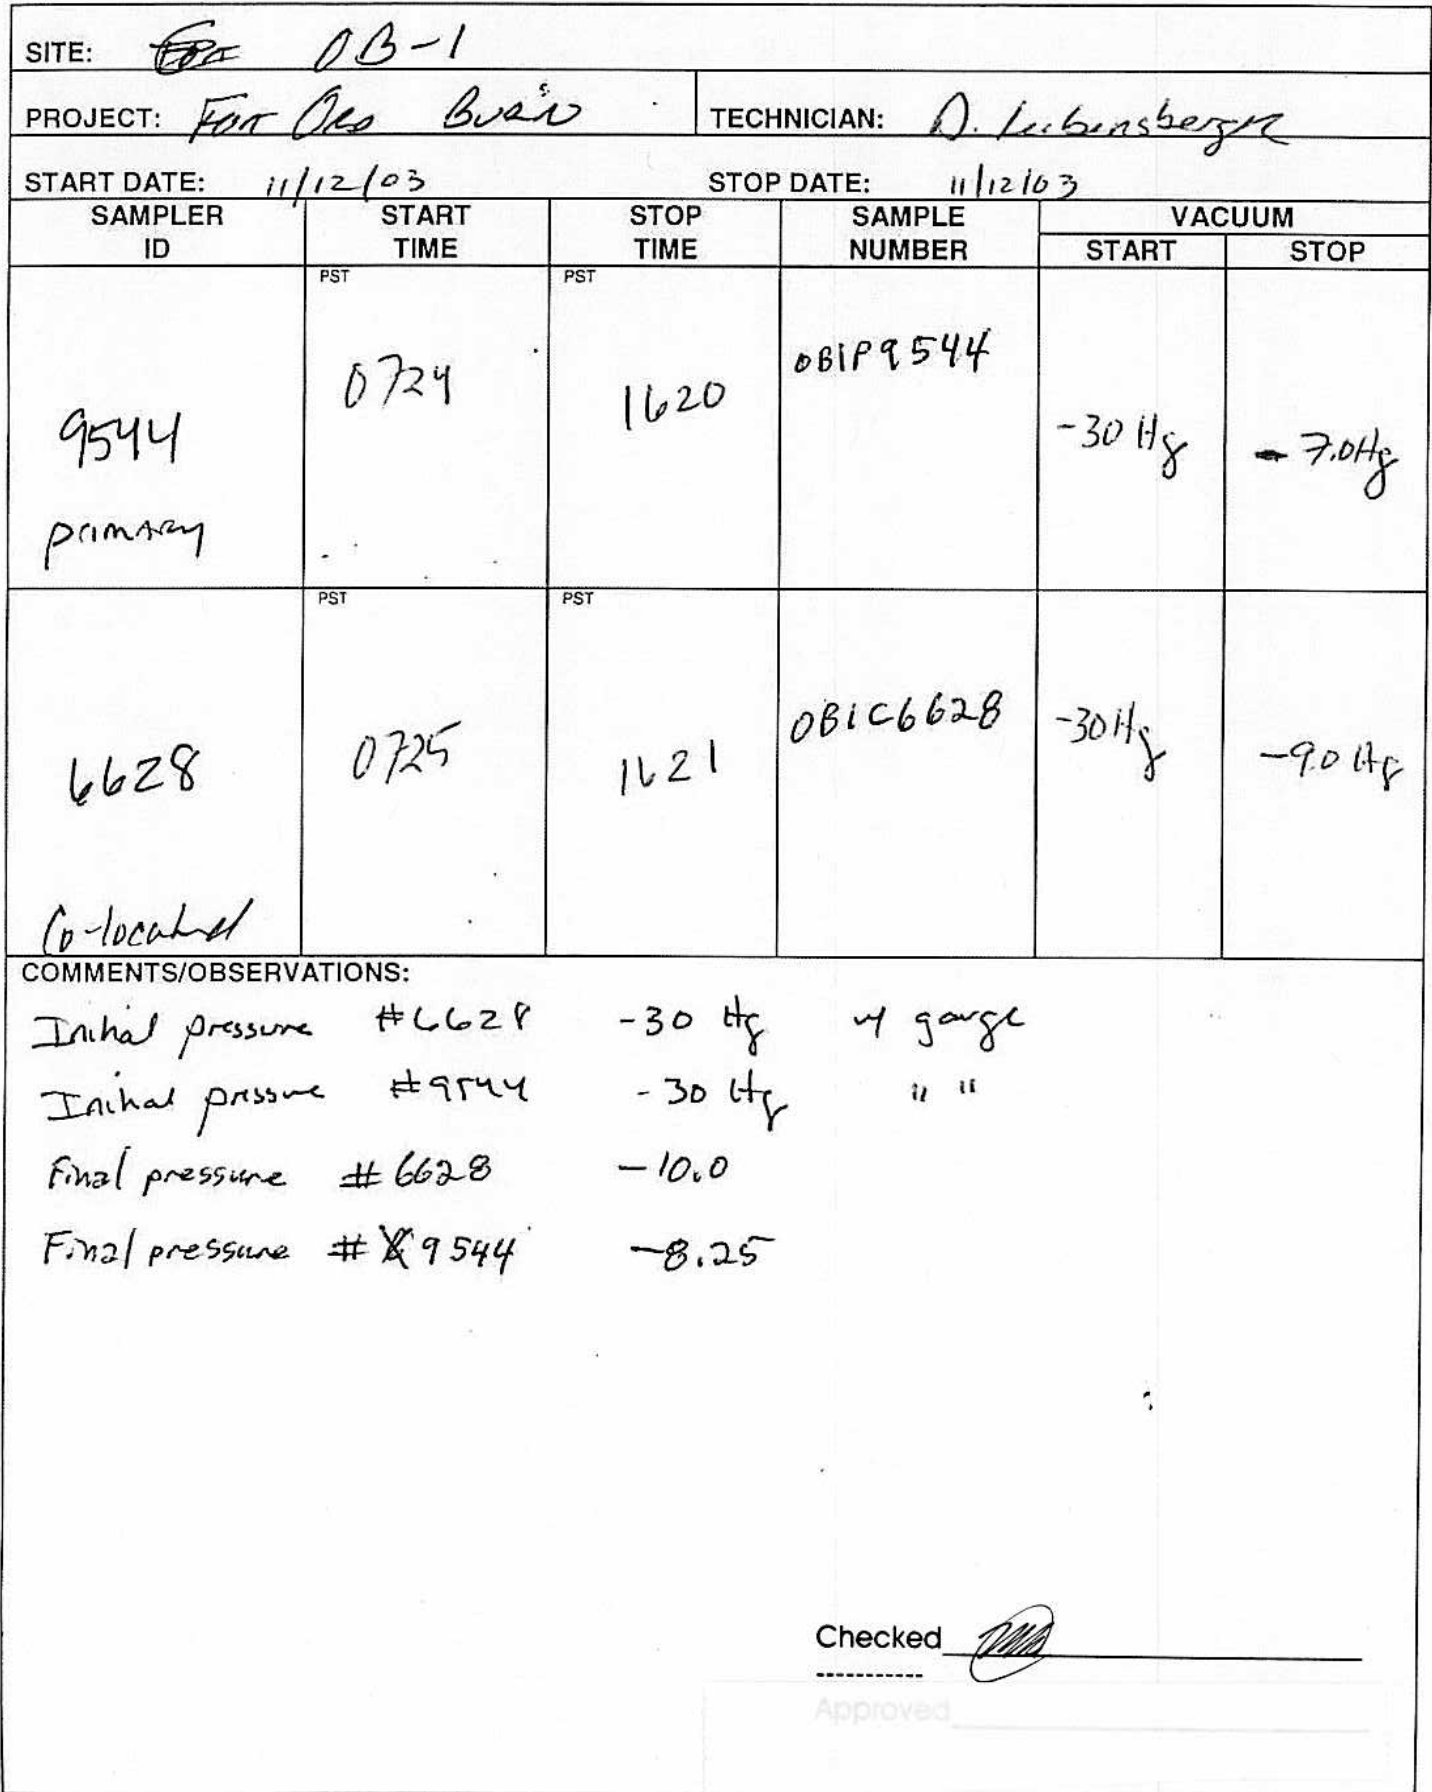 SITE: OB-1
PROJECT: Fort Ord Burn TECHNICIAN: D.
START DATE: 11/12/03 STOP DATE: 11/12/03
SAMPLER ID START TIME STOP TIME SAMPLE NUMBER VACUUM START STOP
PST PST
9544 primary 0724 1620 OB1P9544 -30 Hg - 7.0Hg
PST PST
6628 Co-located 0725 1621 OB1C6628 -30Hg -9.0 Hg
COMMENTS/OBSERVATIONS:
Initial pressure #6628 -30 Hg w/ gauge
Initial pressure #9544 -30 Hg " "
Final pressure #6628 -10.0
Final pressure #9544 -8.25
Checked
Approved